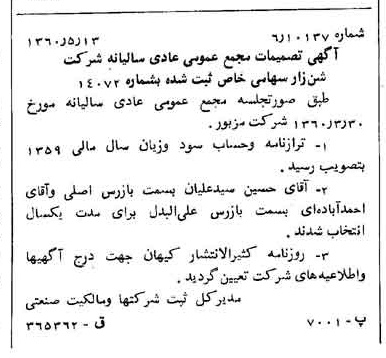 شماره ۶/۱۰۱۳۷ ۱۳۶۰/۵/۱۳
آگهی تصمیمات مجمع عمومی عادی سالیانه شرکت
شن‌زار سهامی خاص ثبت شده بشماره ۱۴۰۷۲
طبق صورتجلسه مجمع عمومی عادی سالیانه مورخ
۱۳۶۰/۳/۳۰ شرکت مزبور .
۱- ترازنامه وحساب سود وزیان سال مالی ۱۳۵۹
بتصویب رسید .
۲- آقای حسین سیدعلیان بسمت بازرس اصلی وآقای
احمدآباده‌ای بسمت بازرس علی‌البدل برای مدت یکسال
انتخاب شدند .
۳- روزنامه کثیرالانتشار کیهان جهت درج آگهیها
واطلاعیه‌های شرکت تعیین گردید .
مدیرکل ثبت شرکتها ومالکیت صنعتی
پ-۷۰۰۱ ق-۳۶۵۳۶۲